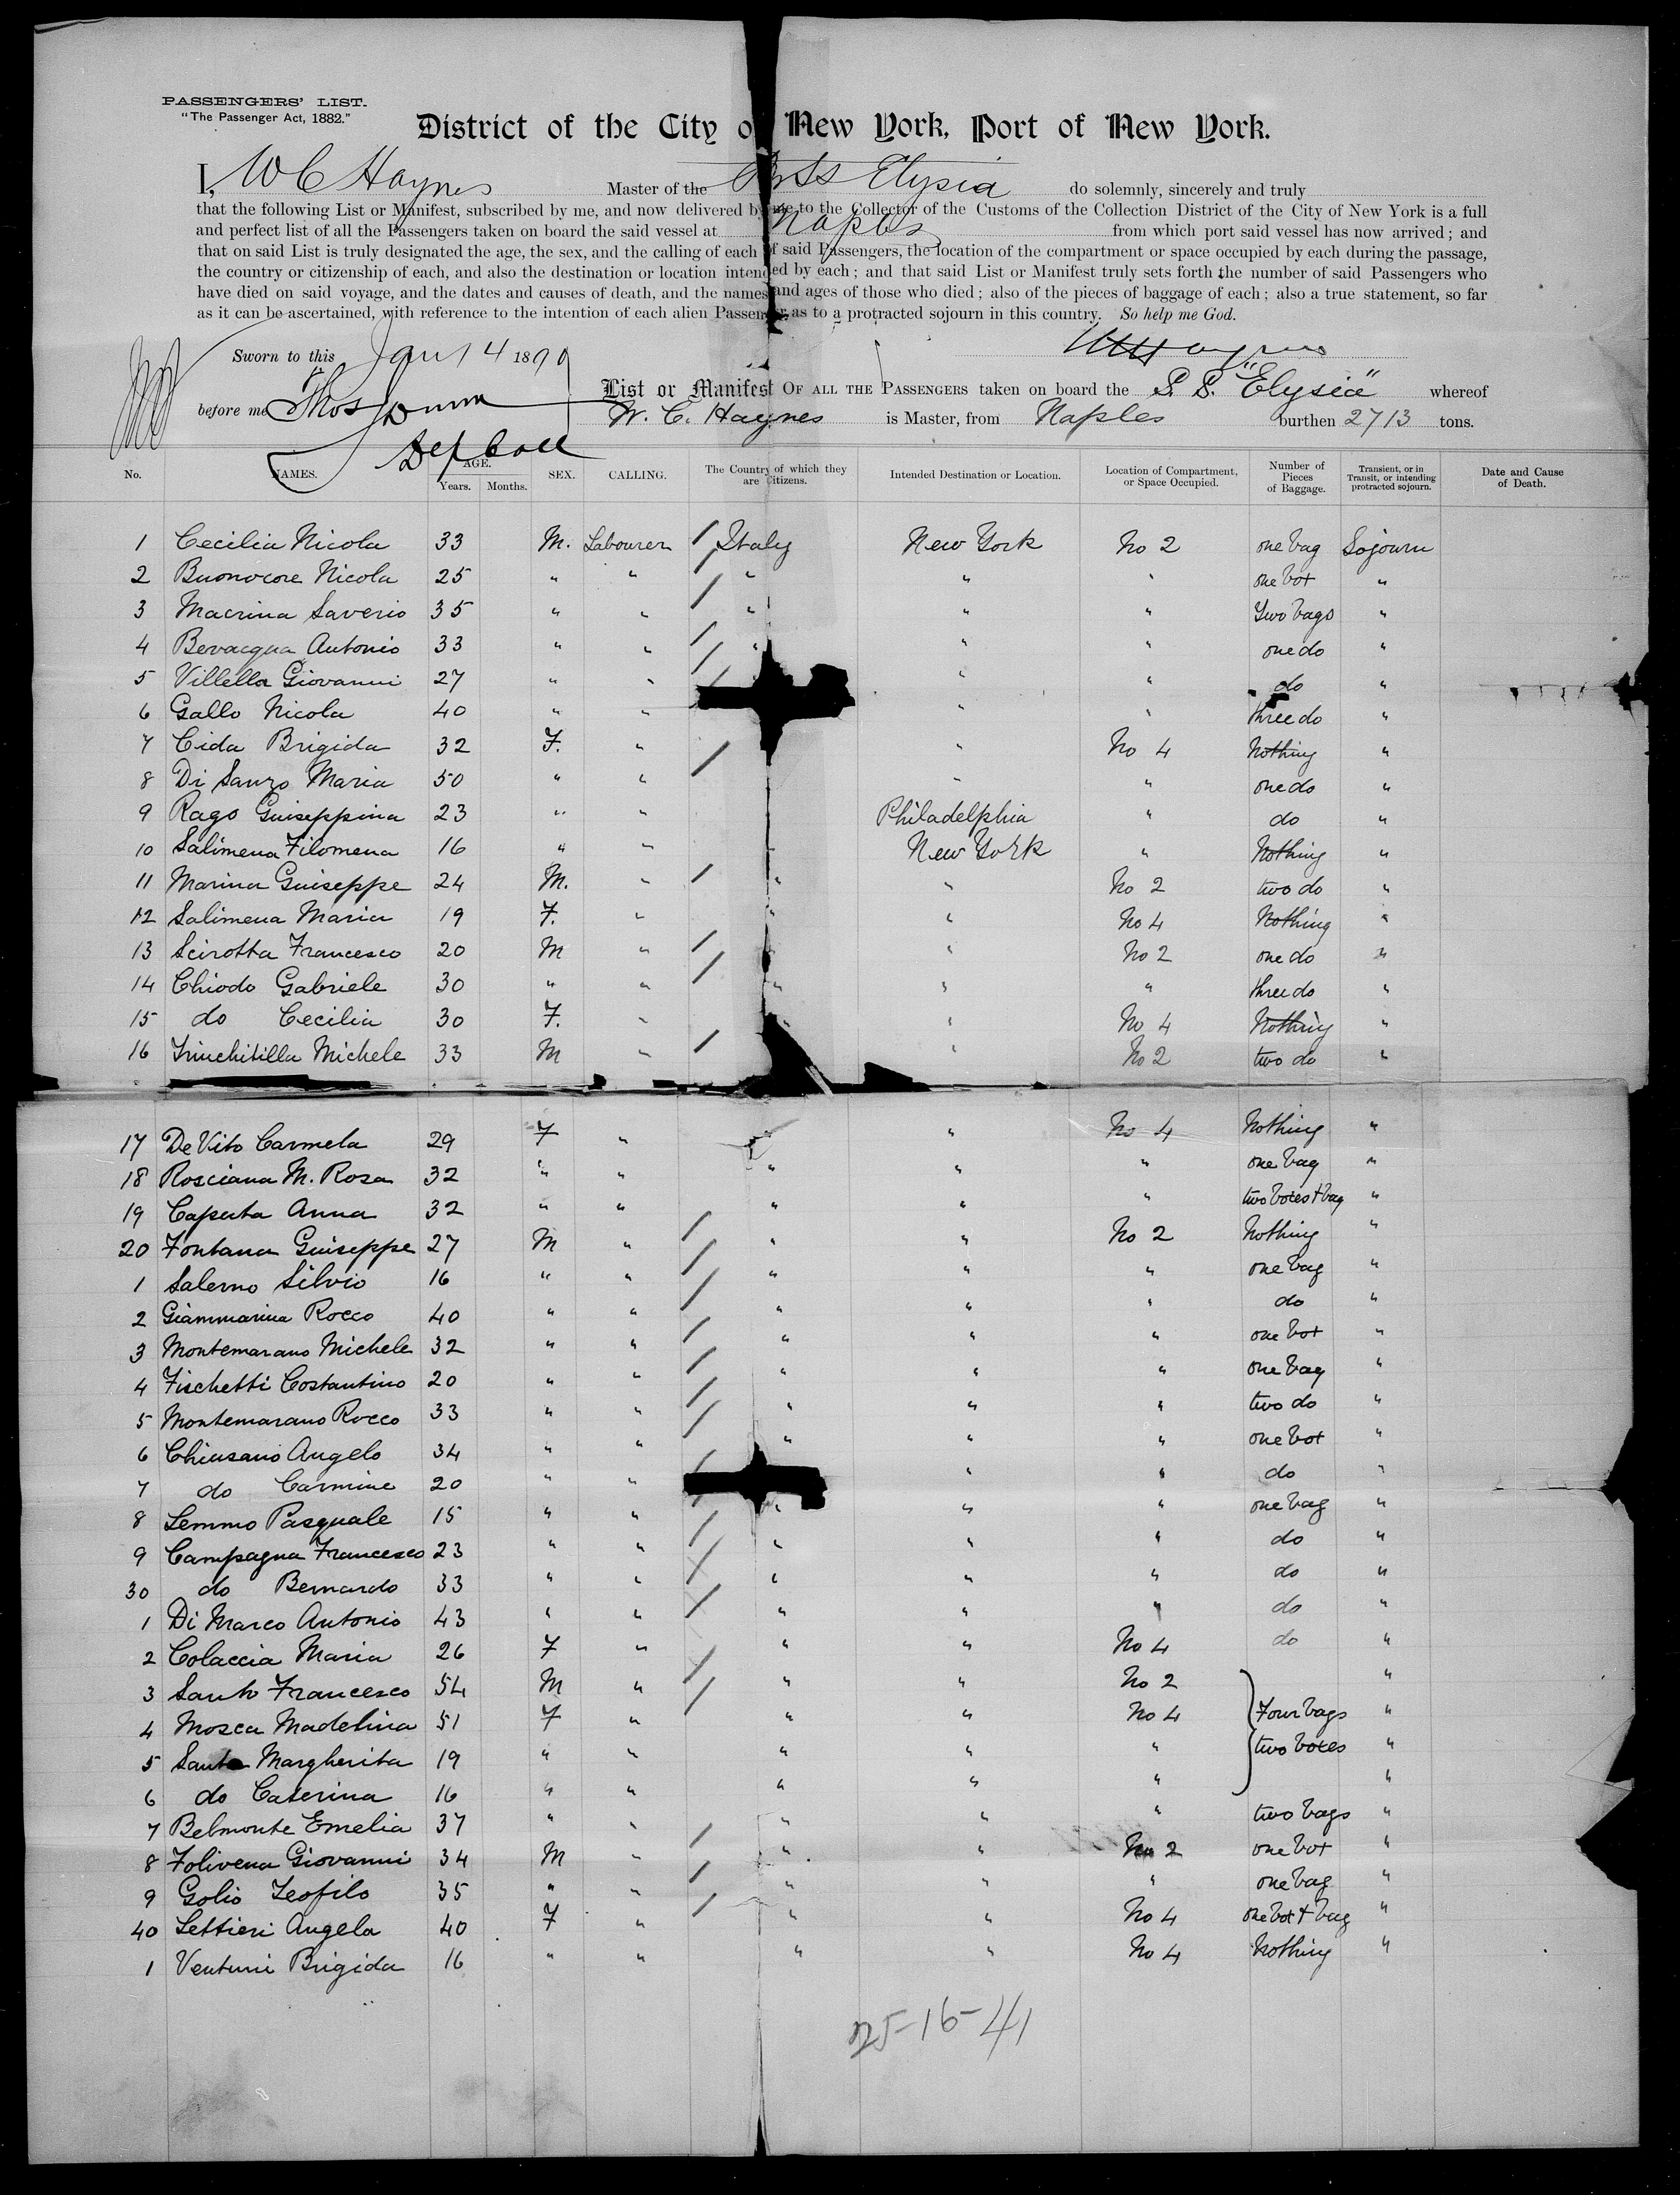 PASSENGERS' LIST.
"The Passenger Act, 1882."
District of the City of New York, Port of New York.
I, W C Haynes Master of the SS Elysia do solemnly, sincerely and truly
that the following List or Manifest, subscribed by me, and now delivered by me to the Collector of the Customs of the Collection District of the City of New York is a full
and perfect list of all the Passengers taken on board the said vessel at Naples from which port said vessel has now arrived; and
that on said List is truly designated the age, the sex, and the calling of each of said Passengers, the location of the compartment or space occupied by each during the passage,
the country or citizenship of each, and also the destination or location intended by each; and that said List or Manifest truly sets forth the number of said Passengers who
have died on said voyage, and the dates and causes of death, and the names and ages of those who died; also of the pieces of baggage of each; also a true statement, so far
as it can be ascertained, with reference to the intention of each alien Passenger as to a protracted sojourn in this country. So help me God.
Sworn to this Jany 14 1890 W C Haynes
before me Thos Dunn
Dep Coll
List or Manifest OF ALL THE PASSENGERS taken on board the S. S. "Elysia" whereof
W. C. Haynes is Master, from Naples burthen 2713 tons.
No. NAMES. AGE. Years. Months. SEX. CALLING. The Country of which they are Citizens. Intended Destination or Location. Location of Compartment, or Space Occupied. Number of Pieces of Baggage. Transient, or in Transit, or intending protracted sojourn. Date and Cause of Death.
1 Cecilia Nicola 33 M. Labourer Italy New York No 2 one bag Sojourn
2 Buonocore Nicola 25 " " " " " one box "
3 Macrina Saverio 35 " " " " " Two bags "
4 Bevacqua Antonio 33 " " " " " one do "
5 Villella Giovanni 27 " " " " do "
6 Gallo Nicola 40 " " " " three do "
7 Cida Brigida 32 F. " " No 4 Nothing "
8 Di Sanzo Maria 50 " " " " one do "
9 Rago Guiseppina 23 " " Philadelphia " do "
10 Salimena Filomena 16 " " New York " Nothing "
11 Marina Guiseppe 24 M. " " " No 2 two do "
12 Salimena Maria 19 F. " " " No 4 Nothing "
13 Scirotta Francesco 20 M " " " No 2 one do "
14 Chiodo Gabriele 30 " " " " " three do "
15 do Cecilia 30 F. " " " No 4 Nothing "
16 Trinchitilla Michele 33 M " " No 2 two do "
17 De Vito Carmela 29 F " " " No 4 Nothing "
18 Rosciana M. Rosa 32 " " " " " one bag "
19 Caputa Anna 32 " " " " " two boxes + bag "
20 Fontana Guiseppe 27 M " " " No 2 Nothing "
1 Salerno Silvio 16 " " " " " one bag "
2 Giammarina Rocco 40 " " " " " do "
3 Montemarano Michele 32 " " " " " one box "
4 Fischetti Costantino 20 " " " " " one bag "
5 Montemarano Rocco 33 " " " " " two do "
6 Chiusano Angelo 34 " " " " " one box "
7 do Carmine 20 " " " " do "
8 Lemmo Pasquale 15 " " " " " one bag "
9 Campagna Francesco 23 " " " " " do "
30 do Bernardo 33 " " " " " do "
1 Di Marco Antonio 43 " " " " " do "
2 Colaccia Maria 26 F " " " No 4 do "
3 Santo Francesco 54 M " " " No 2 "
4 Mosca Madelina 51 F " " " No 4 Four bags "
5 Santo Margherita 19 " " " " " two boxes "
6 do Caterina 16 " " " " " "
7 Belmonte Emelia 37 " " " " " two bags "
8 Folivena Giovanni 34 M " " " No 2 one box "
9 Golio Teofilo 35 " " " " " one bag "
40 Lettieri Angela 40 F " " " No 4 one box + bag "
1 Venturi Brigida 16 " " " " No 4 Nothing "
25-16-41